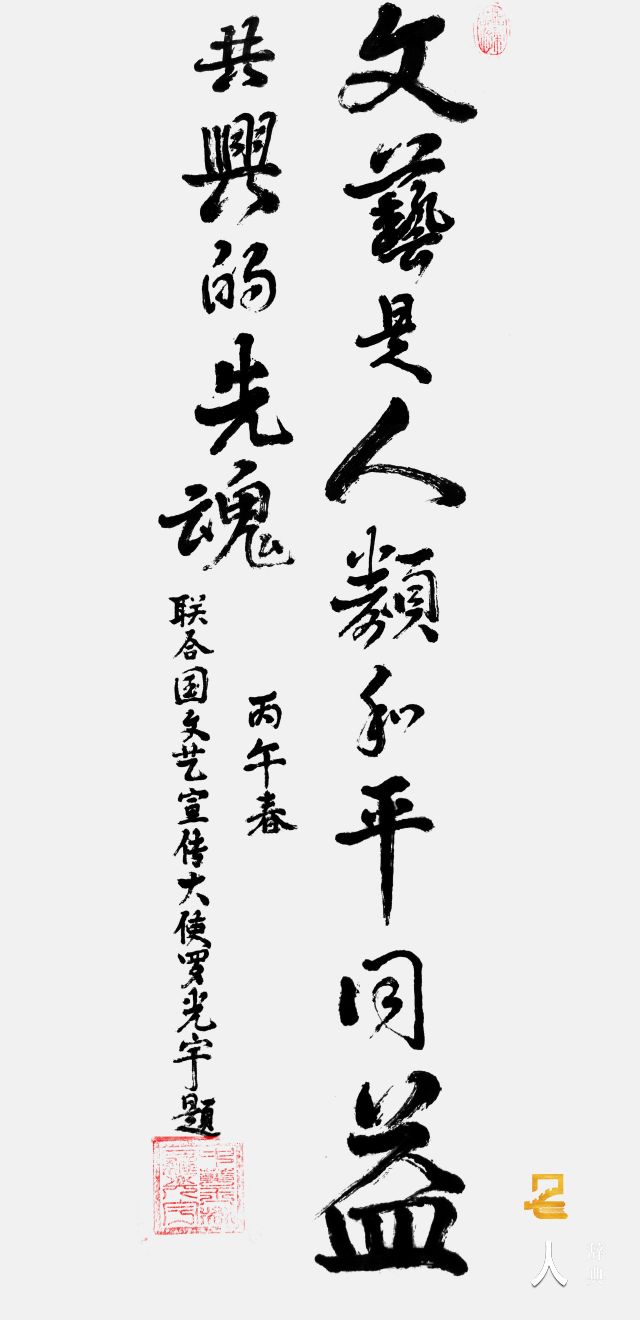 文藝是人類和平同益
共興的先魂
丙午春
联合国文艺宣传大使罗光宇題
名
人
辞典